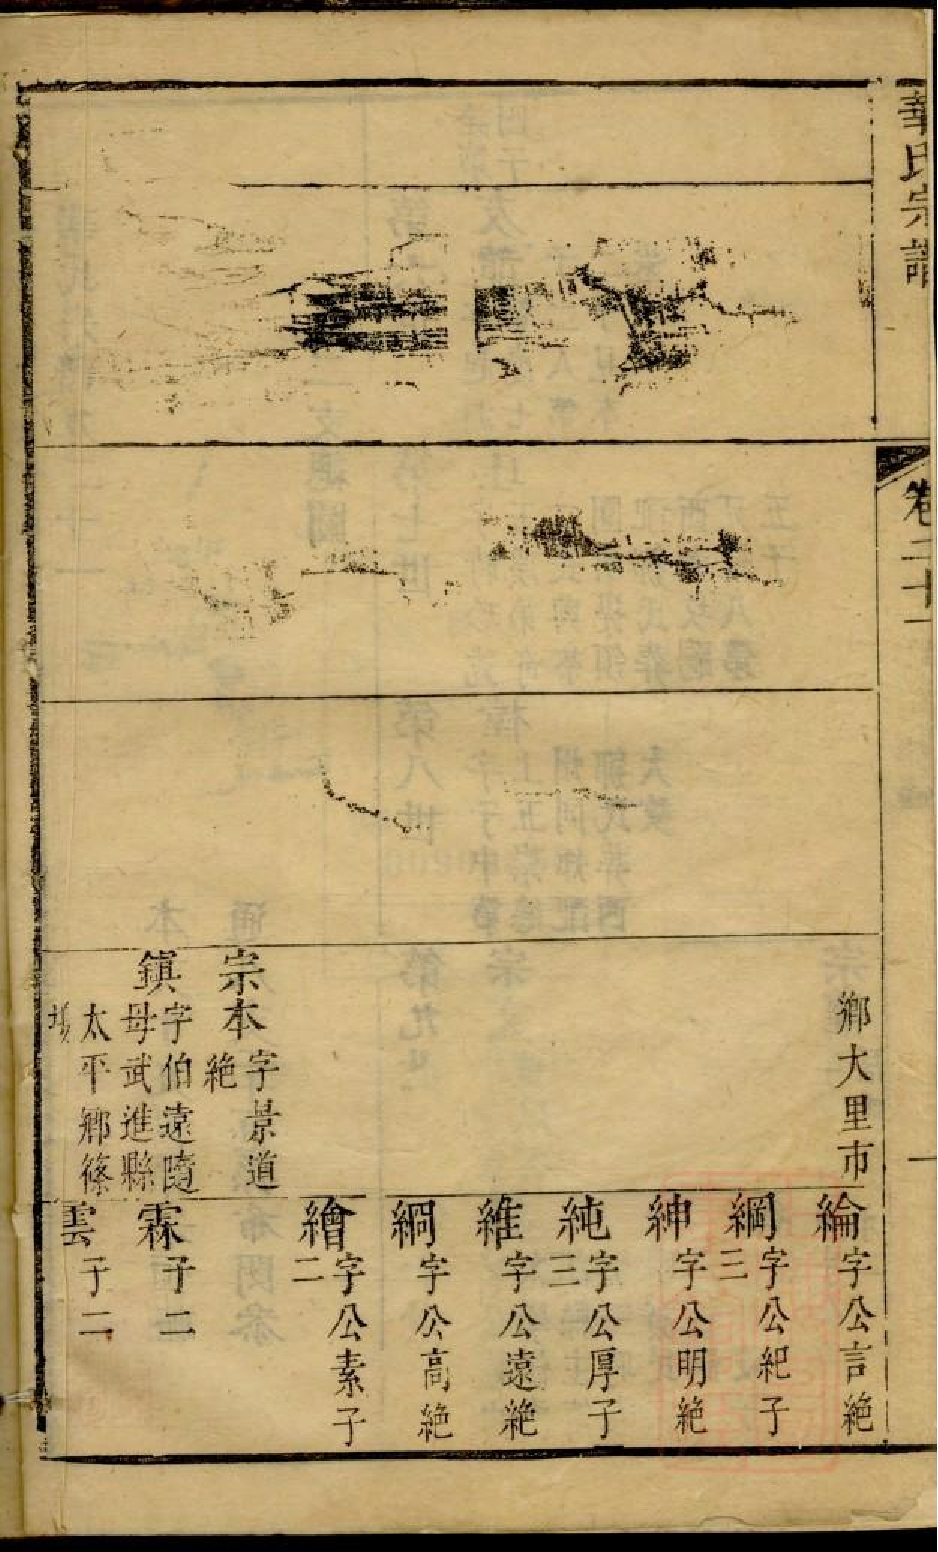 華氏宗譜
卷二十一
一
鄉大里市
宗本
字景道
絶
鎮
字伯遠隨
母武進縣
太平鄉篠
塲
綸
字公言絶
綱
字公紀子
三
紳
字公明絶
純
字公厚子
三
維
字公遠絶
綗
字公高絶
繪
字公素子
二
霖
子二
雲
子二